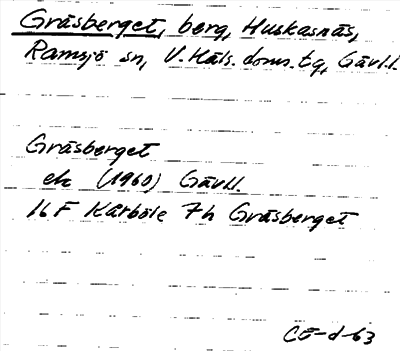 Gråsberget, berg, Huskasnäs,
Ramsjö sn, V. Häls. doms. tg, Gävl.l.
Gråsberget
ek (1960) Gävl.l.
16 F Kårböle 7h Gråsberget
CE-d-63